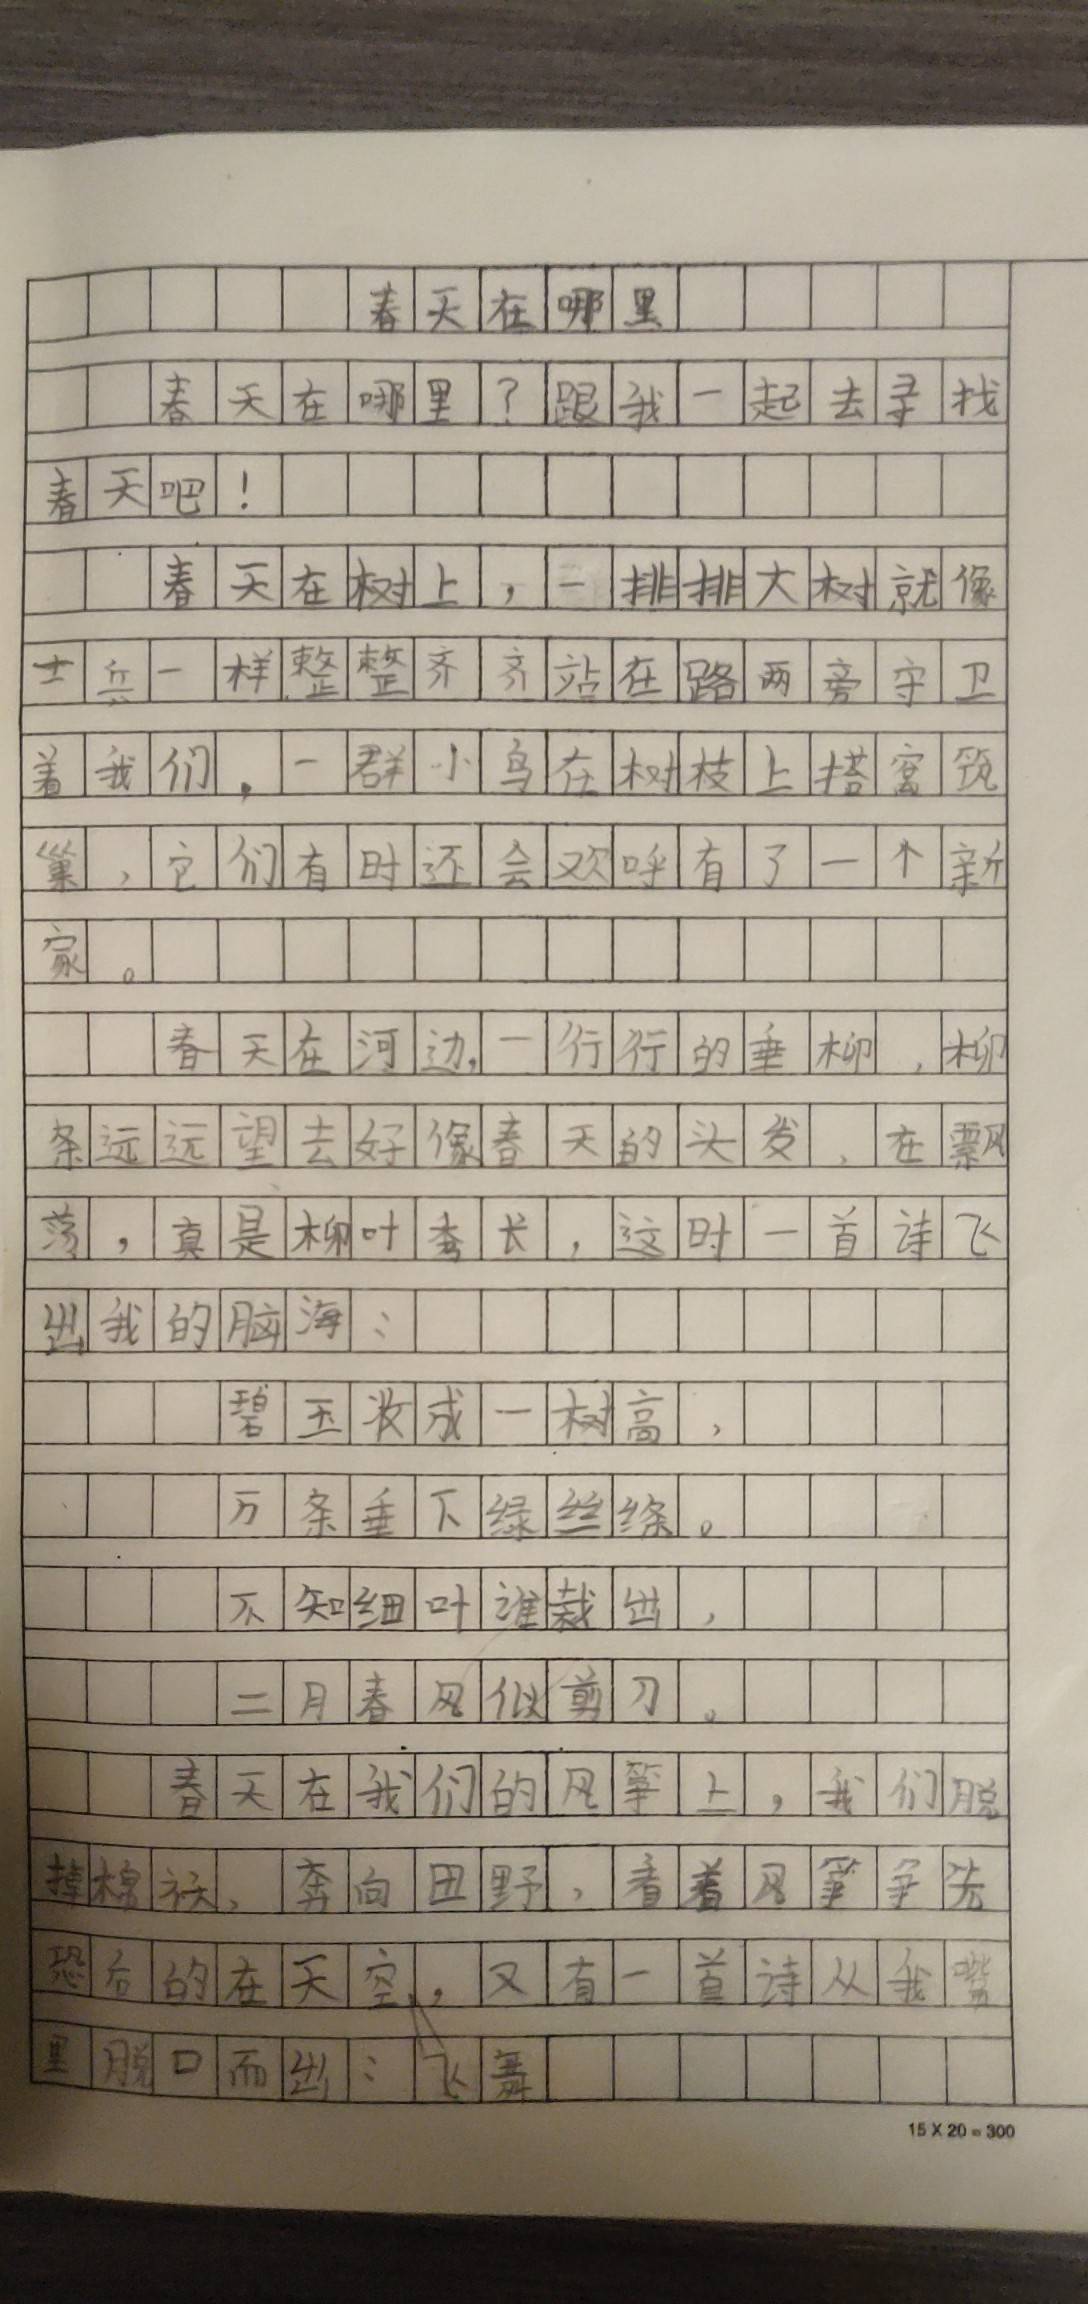 春天在哪里
春天在哪里？跟我一起去寻找
春天吧！
春天在树上，一排排大树就像
士兵一样整整齐齐站在路两旁守卫
着我们，一群小鸟在树枝上搭窝筑
巢，它们有时还会欢呼有了一个新
家。
春天在河边，一行行的垂柳，柳
条远远望去好像春天的头发，在飘
荡，真是柳叶秀长，这时一首诗飞
出我的脑海：
碧玉妆成一树高，
万条垂下绿丝绦。
不知细叶谁裁出，
二月春风似剪刀。
春天在我们的风筝上，我们脱
掉棉袄，奔向田野，看着风筝争先
恐后的在天空，又有一首诗从我嘴
里脱口而出：飞舞
15 X 20 = 300